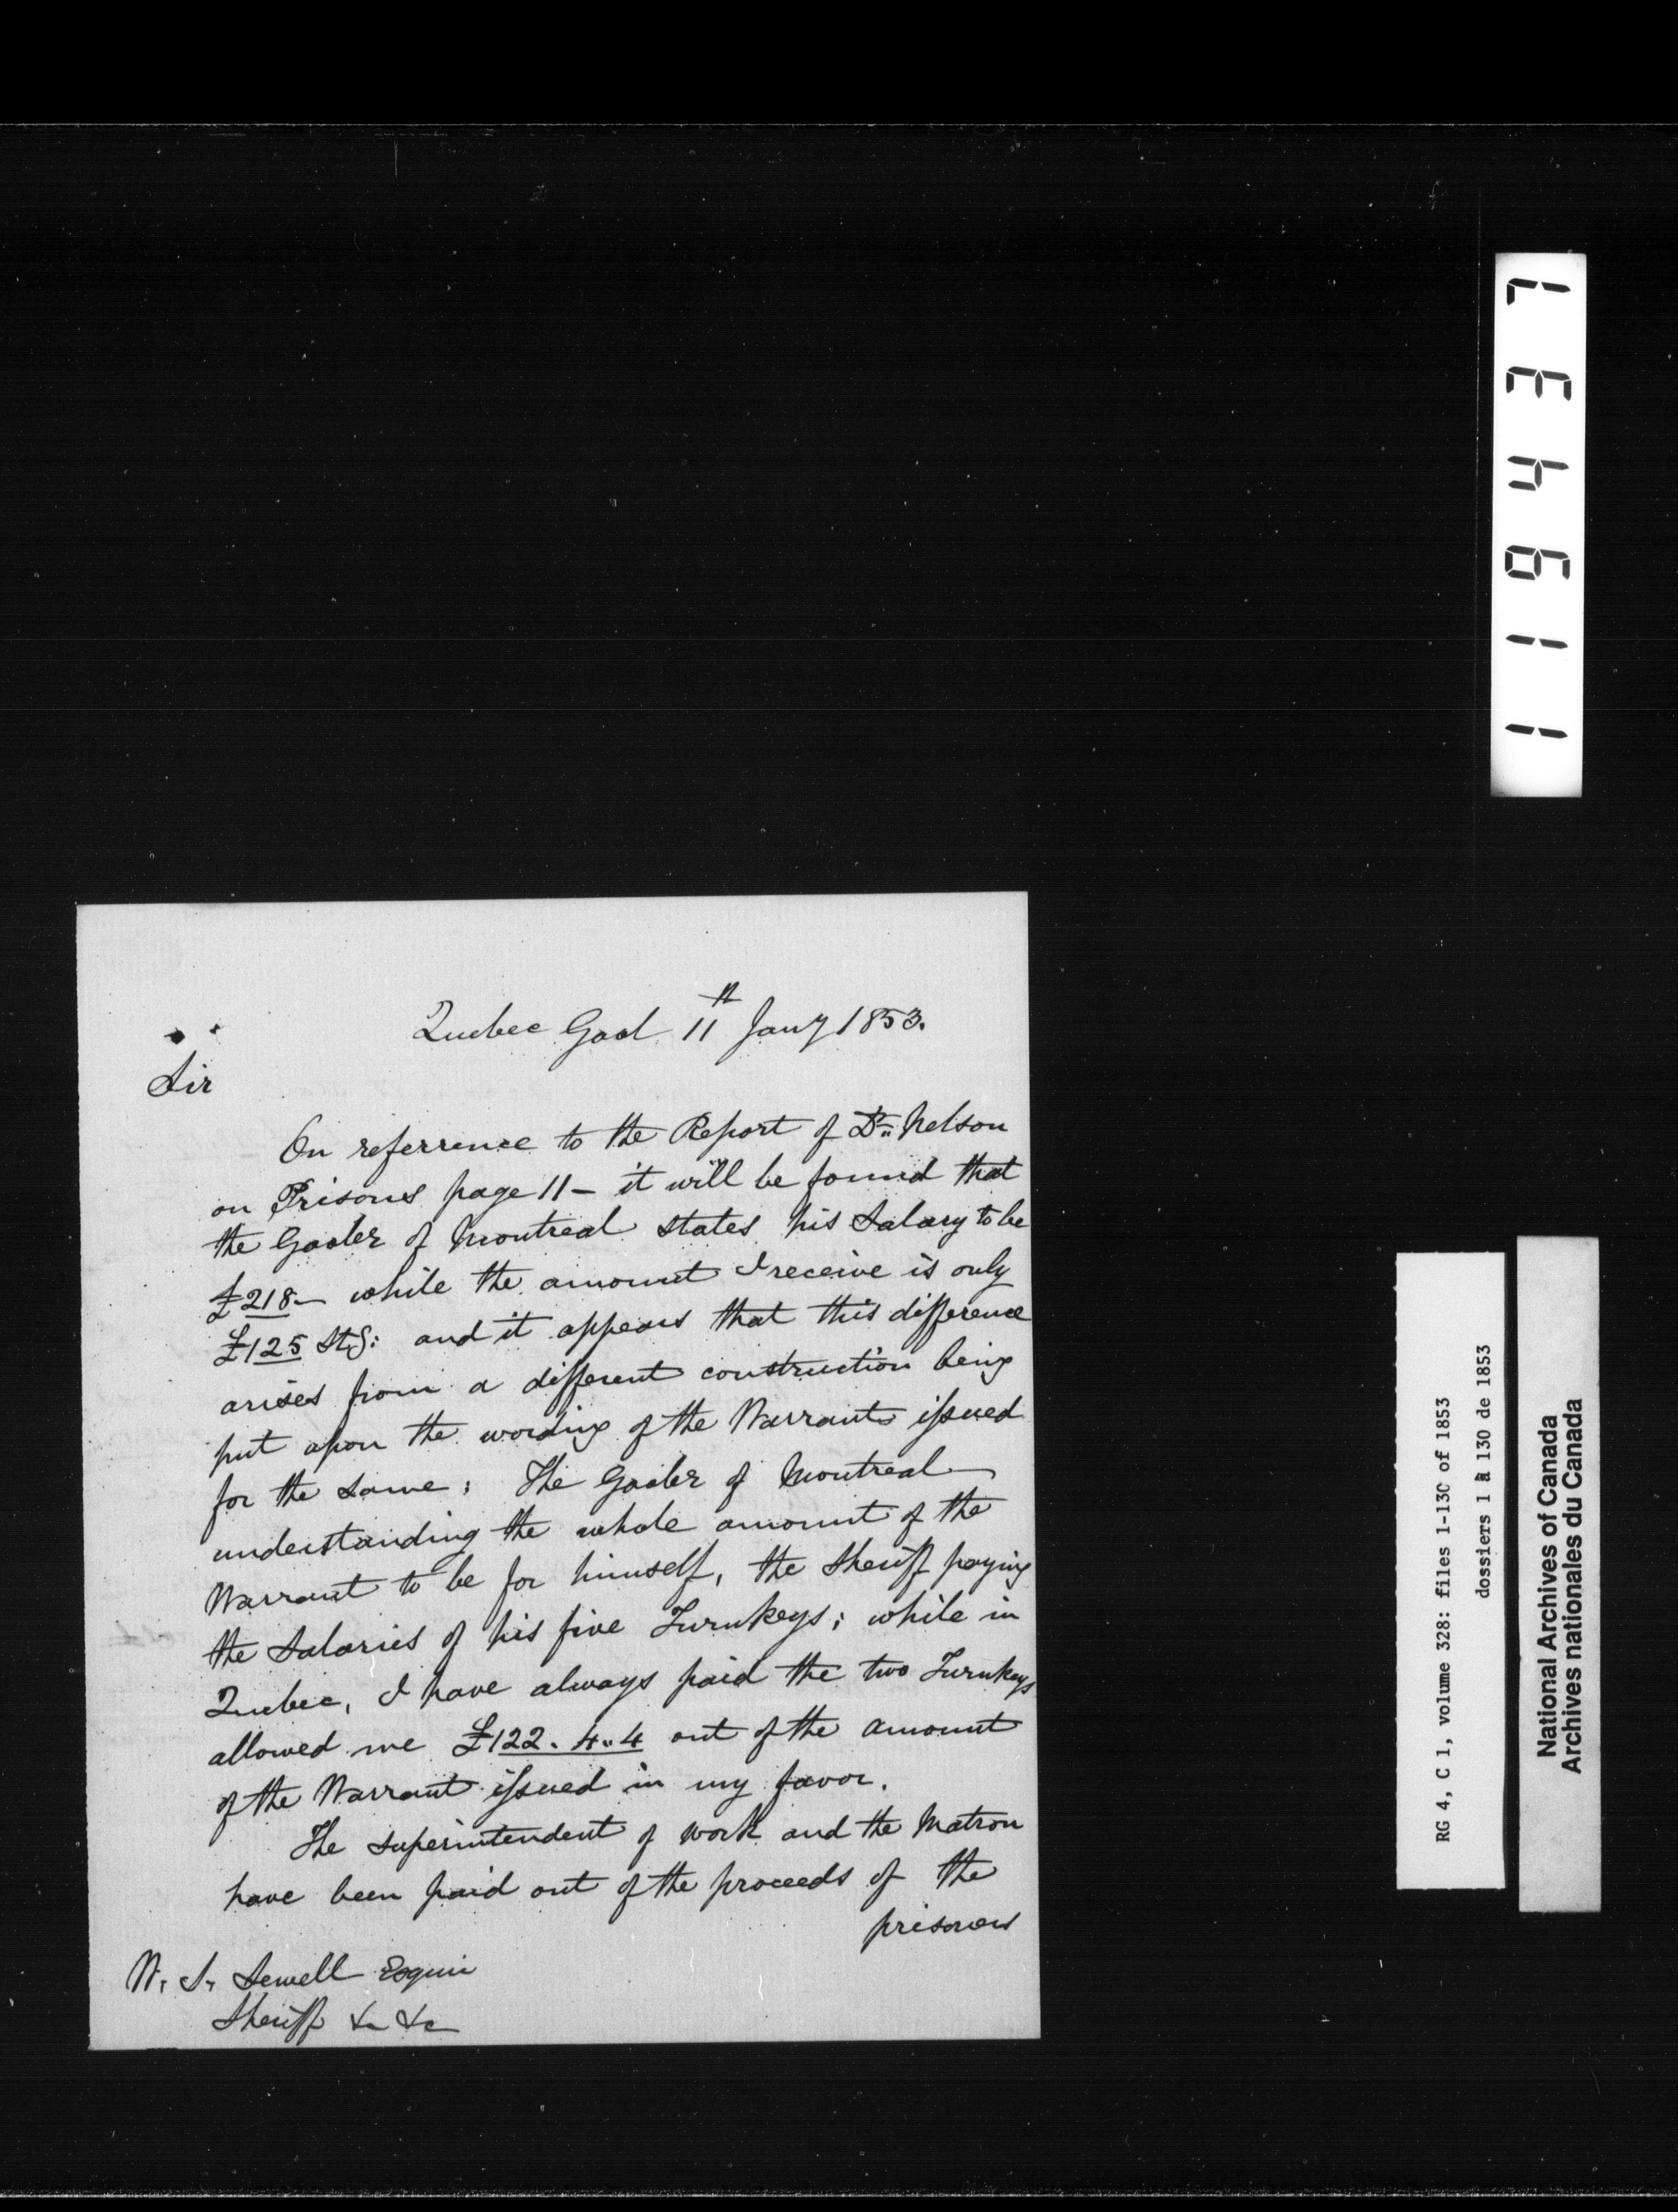 Quebec Gaol 11th Jany 1853.
Sir
On referrence to the Report of Dr. Nelson
on Prisons page 11 - it will be found that
the Gaoler of Montreal states his Salary to be
£218 - while the amount I receive is only
£125 Stg: and it appears that this difference
arises from a different construction being
put upon the wording of the Warrants issued
for the same; The Gaoler of Montreal
understanding the whole amount of the
Warrant to be for himself, the Sheriff paying
the Salaries of his five Turnkeys; while in
Quebec, I have always paid the two Turnkeys
allowed me £122. 4.. 4 out of the amount
of the Warrant issued in my favor.
The superintendent of work and the Matron
have been paid out of the proceeds of the
prisoners
W. S. Sewell Esquire
Sheriff &c &c
119437
RG 4, C 1, volume 328: files 1-130 of 1853
dossiers 1 à 130 de 1853
National Archives of Canada
Archives nationales du Canada